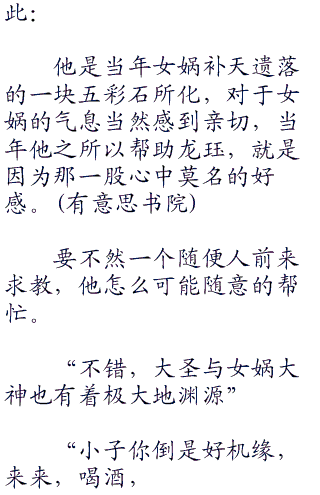 此：
他是当年女娲补天遗落
的一块五彩石所化，对于女
娲的气息当然感到亲切，当
年他之所以帮助龙珏，就是
因为那一股心中莫名的好
感。(有意思书院)
要不然一个随便人前来
求教，他怎么可能随意的帮
忙。
“不错，大圣与女娲大
神也有着极大地渊源”
“小子你倒是好机缘，
来来，喝酒，